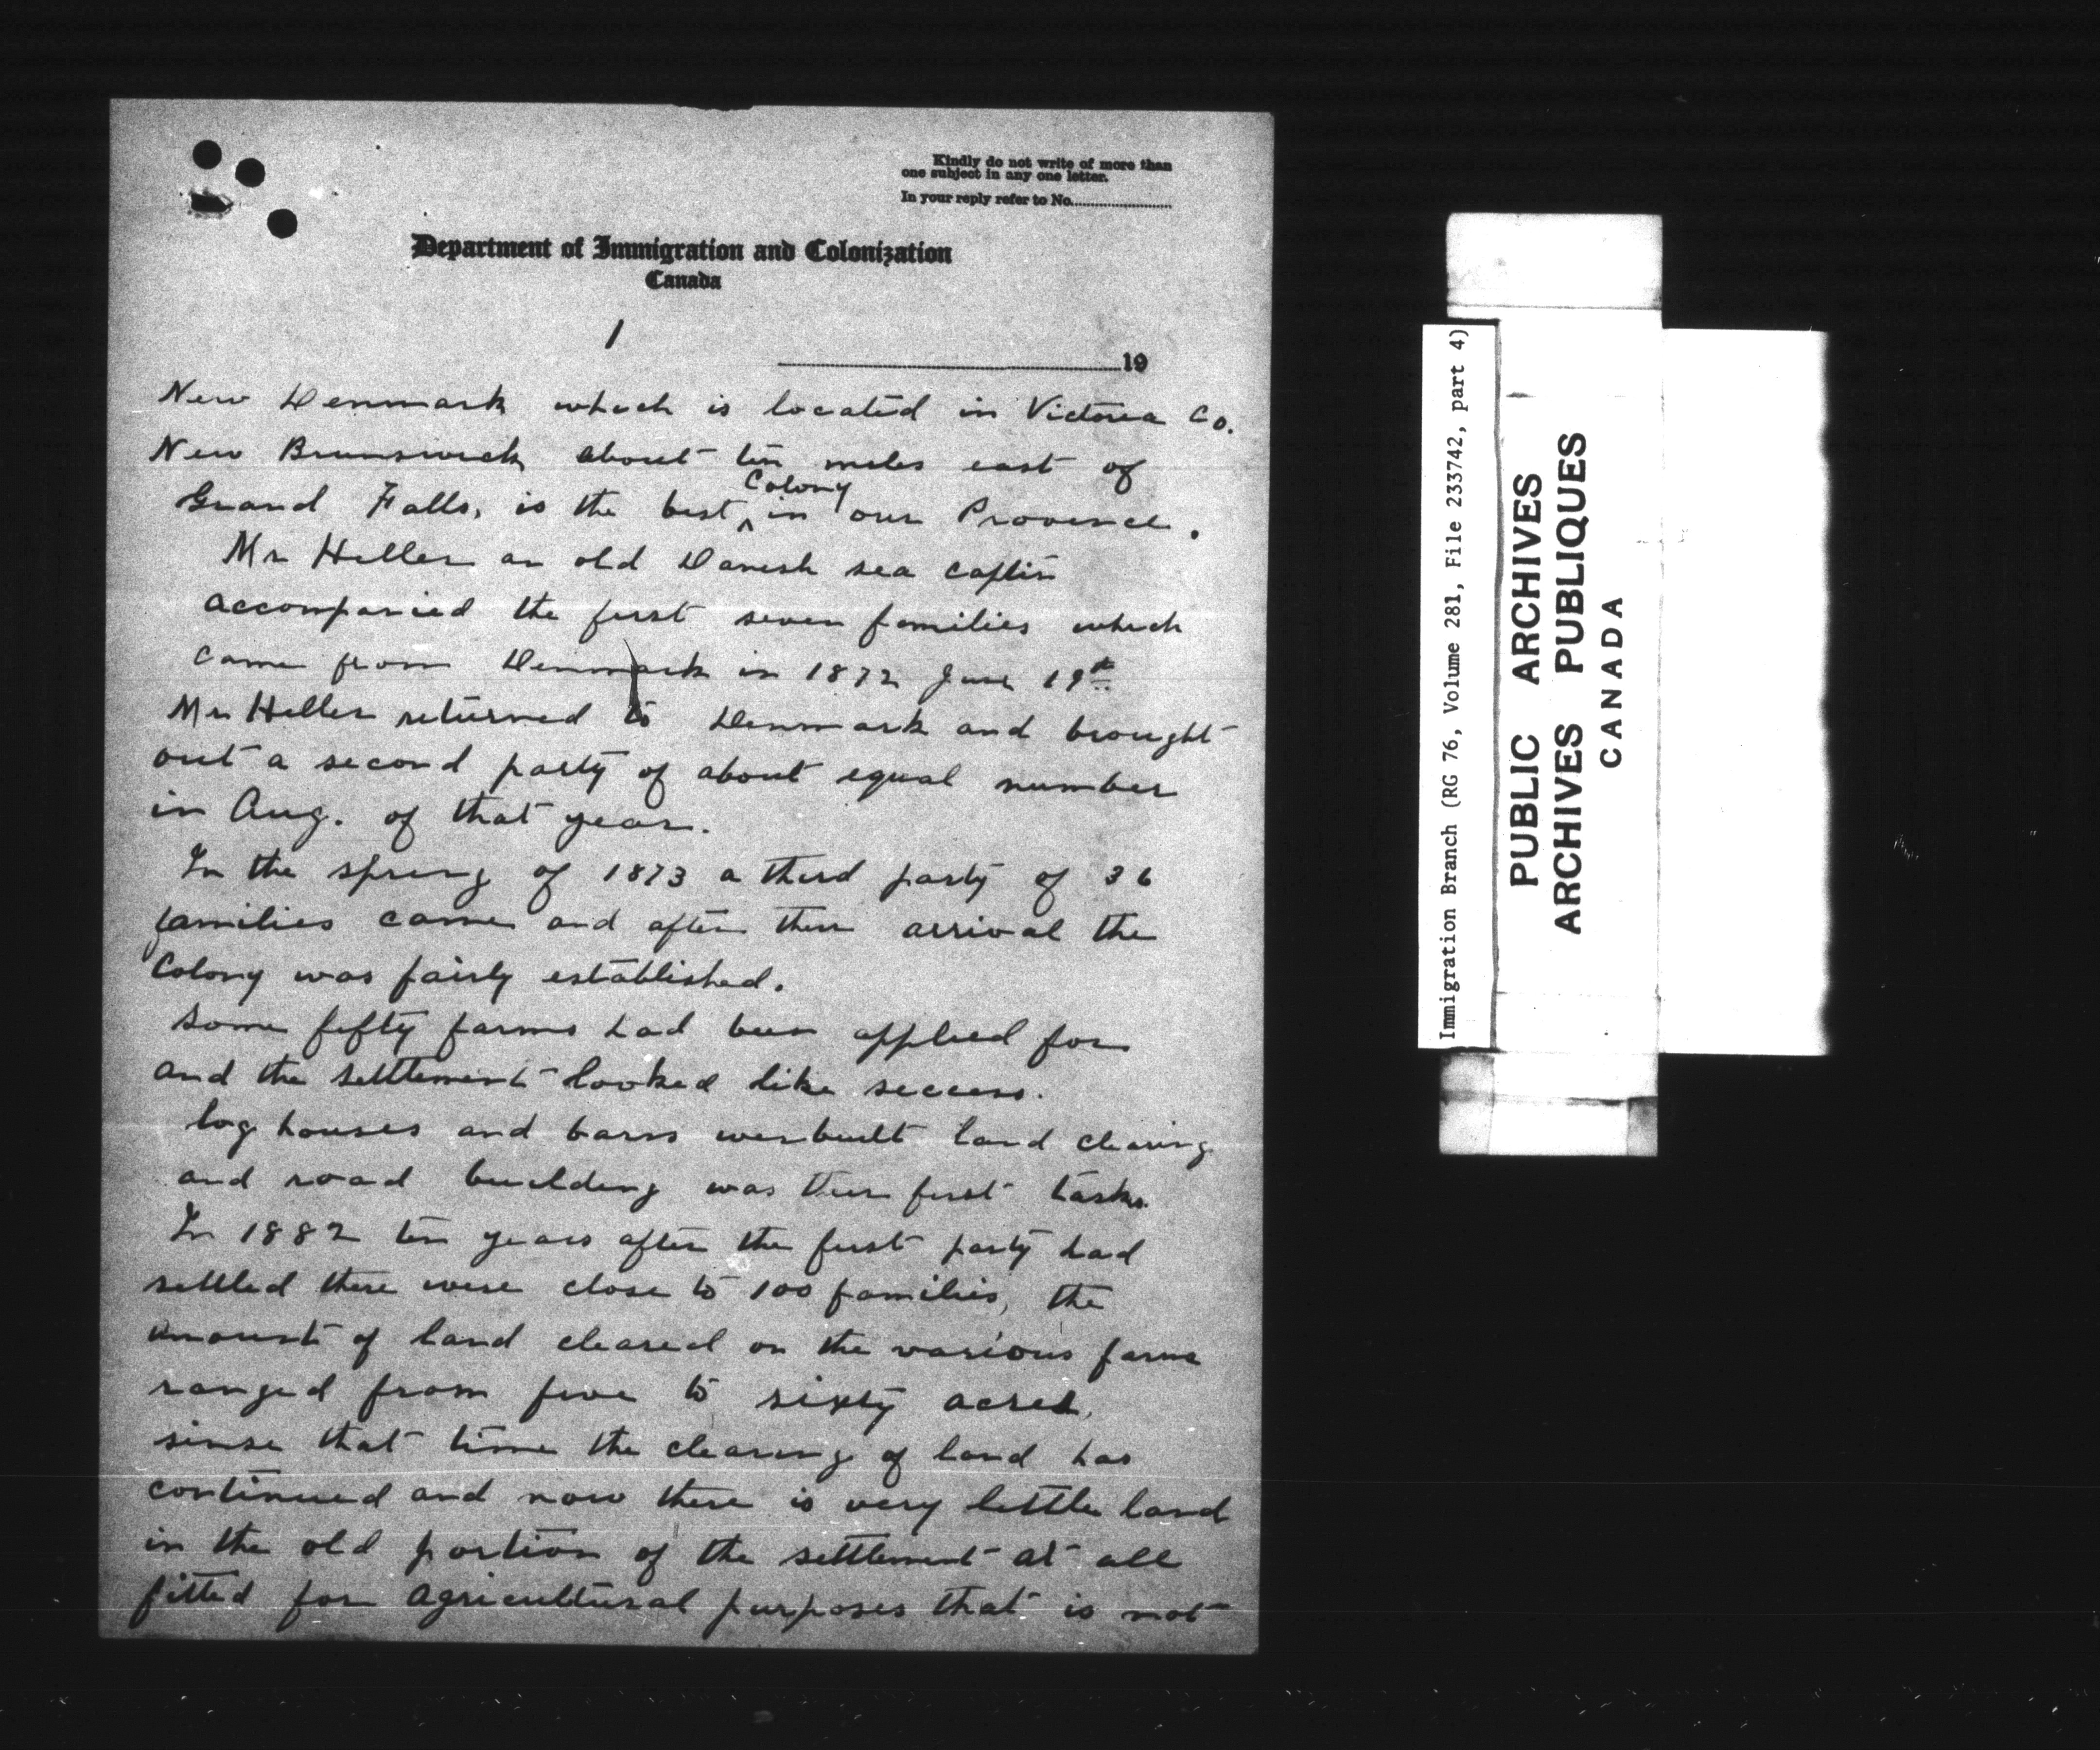 Kindly do not write of more than
one subject in any one letter.
In your reply refer to No.
Department of Immigration and Colonization
Canada
1
19
New Denmark which is located in Victoria Co.
New Brunswick about ten miles east of
Colony
Grand Falls, is the best ^ in our Province.
Mr Heller an old Danish sea captin
accompanied the first seven families which
came from Denmark in 1872 June 19th
Mr Heller returned to Denmark and brought
out a second party of about equal number
in Aug. of that year.
In the spring of 1873 a third party of 36
families came and after their arrival the
Colony was fairly established.
Some fifty farms had been applied for
and the settlement looked like success.
log houses and barns wer built land clearing
and road building was their first tasks.
In 1882 ten years after the first party had
settled there were close to 100 families, the
amount of land cleared on the various farms
ranged from five to sixty acres.
sinse that time the clearing of land has
continued and now there is very little land
in the old portion of the settlement at all
fitted for agricultural purposes that is not
Immigration Branch (RG 76, Volume 281, File 233742, part 4)
PUBLIC ARCHIVES
ARCHIVES PUBLIQUES
CANADA